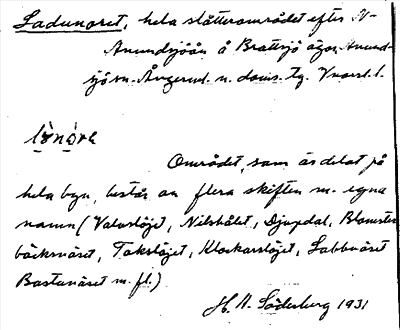 Ladunoret, hela slåtterområdet efter N-
Amundsjöån å Brattsjö ägor. Anund-
sjö sn. Ångerml. n. doms. tg. Vnorrl. l.
lònòre
Området, som är delat på
hela byn, består av flera skiften m. egna
namn (Valaslöjet, Nilsbålet, Djupdal, Blomster
bäcksnäset, Takslöjet, Klockarslöjet, Labbnäset
Bastunäset m. fl.)
H. A. Söderberg 1931